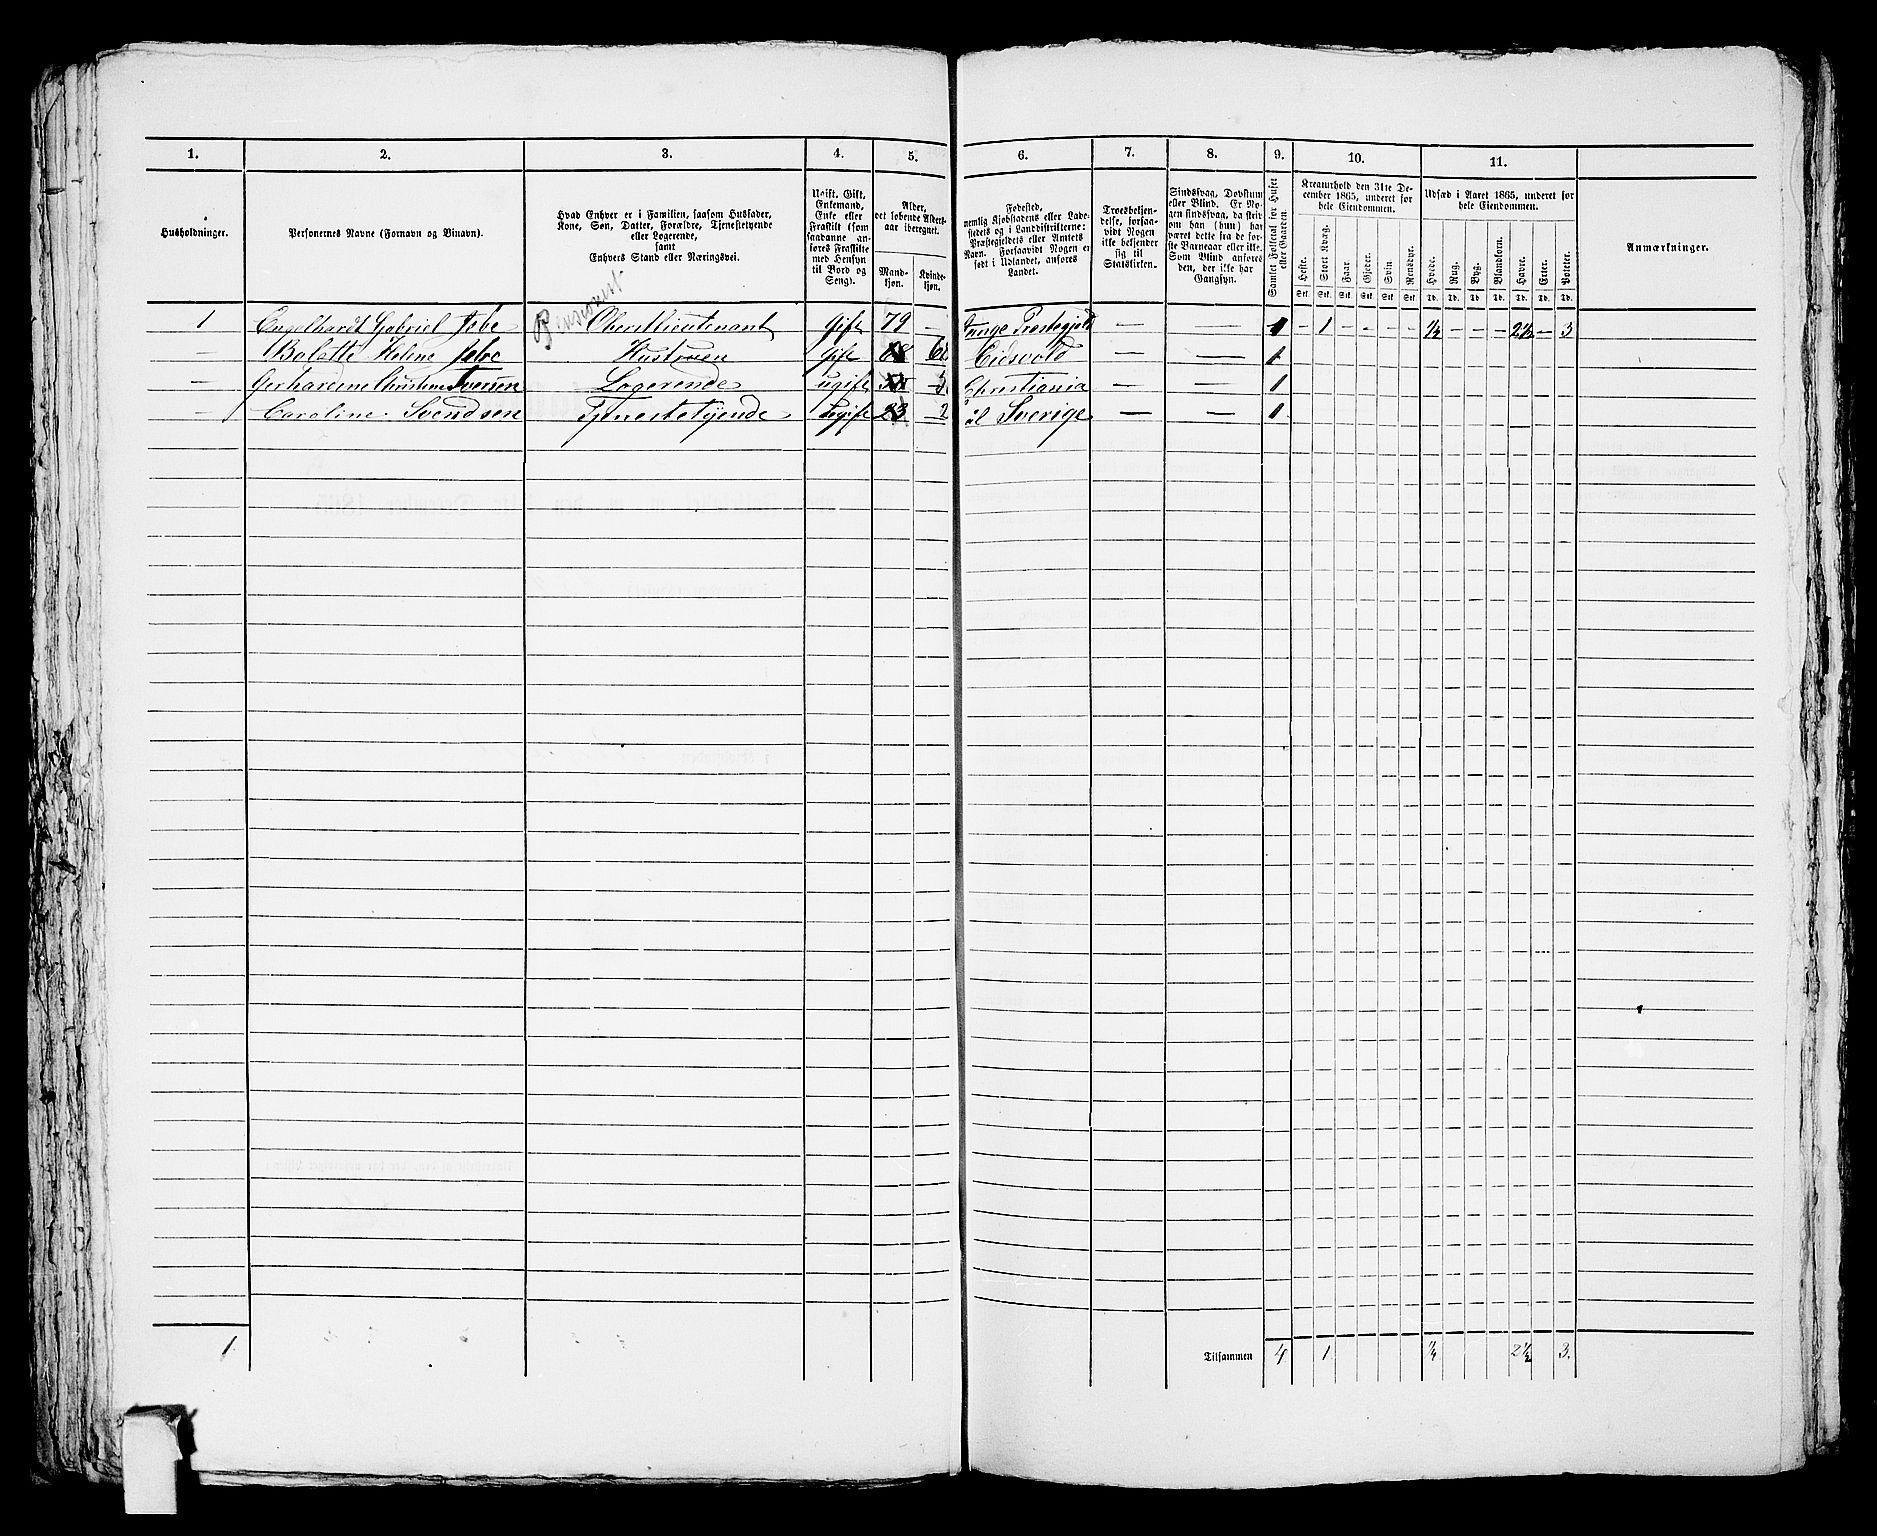 1. 2. 3. 4. 5. 6. 7. 8. 9. 10. 11.
Husholdninger.
Personernes Navne (Fornavn og Binavn).
Hvad Enhver er i Familien, saasom Husfader,
Kone, Søn, Datter, Forældre, Tjenestetyende
eller Logerende,
samt
Enhvers Stand eller Næringsvei.
Ugift, Gift,
Enkemand,
Enke eller
Fraskilt (som
saadanne an-
føres Fraskilte
med Hensyn
til Bord og
Seng).
Alder,
det løbende Alders-
aar iberegnet.
Mand-
kjøn.
Kvinde-
kjøn.
Fødested,
nemlig Kjøbstadens eller Lade-
stedets og i Landdistrikterne:
Præstegjeldets eller Amtets
Navn. Forsaavidt Nogen er
født i Udlandet, anføres
Landet.
Troesbekjen-
delse, forsaa-
vidt Nogen
ikke bekjender
sig til
Statskirken.
Sindssvag, Døvstum
eller Blind. Er No-
gen sindssvag, da skriv
om han (hun) har
været dette fra de før-
ste Barneaar eller ikke.
Som Blind anføres
den, der ikke har
Gangsyn.
Samlet Folketal for Huset
eller Gaarden.
Kreaturhold den 31te De-
cember 1865, underet for
hele Eiendommen.
Heste. Stort Kvæg. Faar. Gjeder. Svin. Rensdyr.
Stk. Stk. Stk. Stk. Stk. Stk.
Udsæd i Aaret 1865, underet for
hele Eiendommen.
Hvede. Rug. Byg. Blandkorn. Havre. Erter. Poteter.
Td. Td. Td. Td. Td. Td. Td.
Anmærkninger.
Pensionist
1 Engelhardt Gabriel Oberstlieutenant gift 79 — Præstegjeld — — 1 — 1 — — — — ½ — — — 2½ — 3
— Helene Hustruen gift Eidsvold — — 1
— Gerhardine Iversen Logerende ugift Christiania — — 1
— Caroline Svendsen Tjenestetyende ugift 23 Sverige — — 1
1 Tilsammen 4 1. 2½ 3.